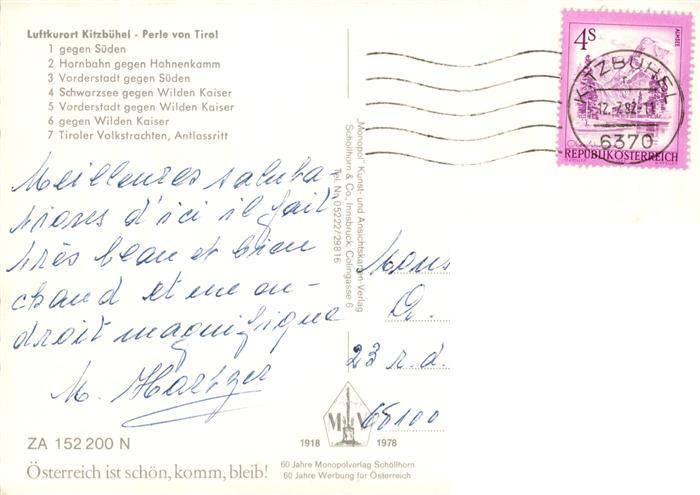 Luftkurort Kitzbühel - Perle von Tirol
1 gegen Süden
2 Hornbahn gegen Hahnenkamm
3 Vorderstadt gegen Süden
4 Schwarzsee gegen Wilden Kaiser
5 Vorderstadt gegen Wilden Kaiser
6 gegen Wilden Kaiser
7 Tiroler Volkstrachten, Antlassritt
Meilleures saluta-
tions d'ici il fait
très beau et bien
chaud et une en-
droit magnifique
M. Hartzer
ZA 152 200 N
Österreich ist schön, komm, bleib!
„Monopol" Kunst- und Ansichtskarten-Verlag
Schöllhorn & Co., Innsbruck, Colingasse 6
Tel. Nr. 05222/29816
M V
1918 1978
60 Jahre Monopolverlag Schöllhorn
60 Jahre Werbung für Österreich
4S
ALMSEE
REPUBLIK ÖSTERREICH
KITZBÜHEL
12.-7.82-11
6370
Mons
23 r. d.
68100